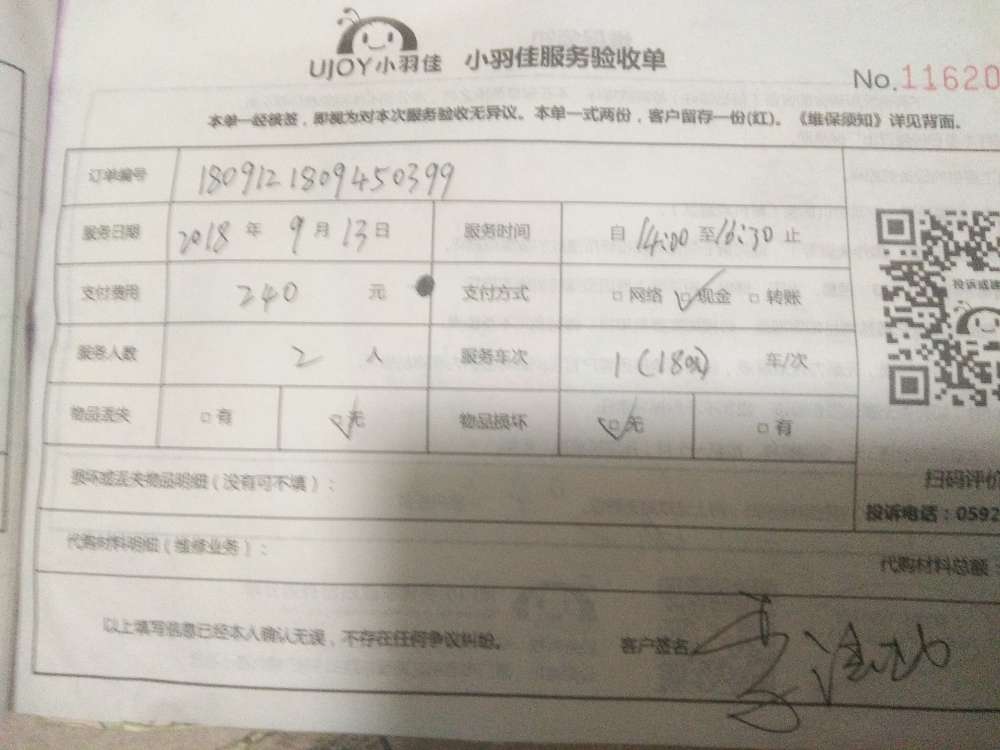 UJOY小羽佳 小羽佳服务验收单
No.11620
本单一经核签，即视为对本次服务验收无异议。本单一式两份，客户留存一份(红)。《维保须知》详见背面。
订单编号 1809121809450399
服务日期 2018年 9月 13日 服务时间 自 14:00 至 16:30 止
支付费用 240 元 支付方式 □网络 ☑现金 □转账
服务人数 2 人 服务车次 1 (180) 车/次
物品丢失 □有 ☑无 物品损坏 ☑无 □有
投诉或建
损坏或丢失物品明细（没有可不填）：
扫码评价
投诉电话：0592
代购材料明细（维修业务）：
代购材料总额：
以上填写信息已经本人确认无误，不存在任何争议纠纷。 客户签名